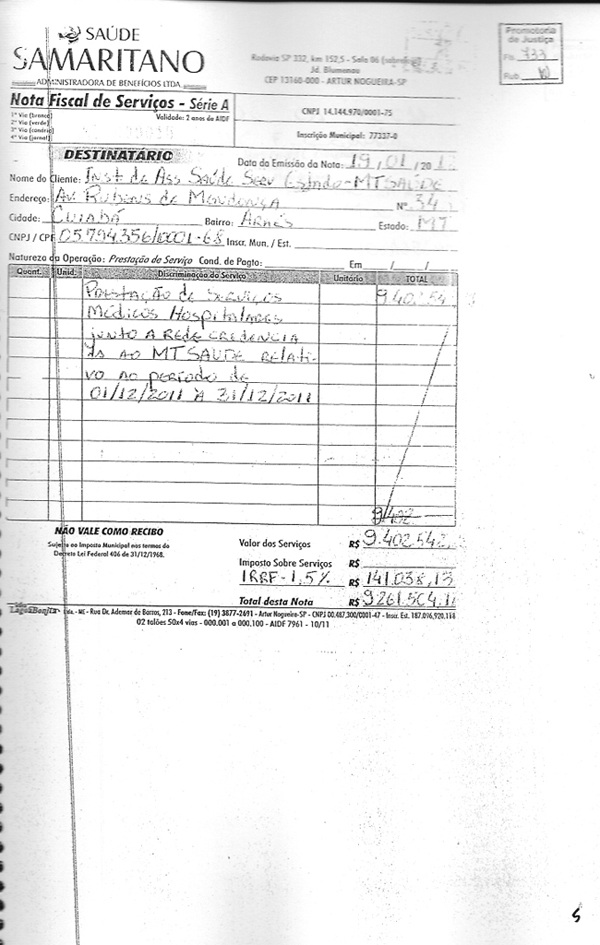 SAÚDE
SAMARITANO
ADMINISTRADORA DE BENEFÍCIOS LTDA.
Rodovia SP 332, km 152,5 - Sala 06
Jd. Blumenau
CEP 13160-000 - ARTUR NOGUEIRA-SP
Promotoria
de Justiça
Fls. 733
Rub.
Nota Fiscal de Serviços - Série A
1ª Via (branca)
2ª Via (verde)
3ª Via (canário)
4ª Via (jornal)
Validade: 2 anos da AIDF
CNPJ 14.144.970/0001-75
Inscrição Municipal: 77337-0
DESTINATÁRIO
Data da Emissão da Nota: 19/01/201
Nome do Cliente: Inst de Ass Saúde Serv Estado-MTSAÚDE
Endereço: Av. Rubens de Mendonça Nº 34
Cidade: CUIABÁ Bairro: Araés Estado: MT
CNPJ / CPF 05.794.356/0001-68 Inscr. Mun. / Est.
Natureza da Operação: Prestação de Serviço Cond. de Pagto: Em / /
Quant. Unid. Discriminação do Serviço Unitário TOTAL
Prestação de Serviços 9.402.542
Médicos Hospitalares
junto a rede credencia
da ao MT SAUDE relati-
vo ao período de
01/12/2011 à 31/12/2011
9.402
NÃO VALE COMO RECIBO
Sujeito ao Imposto Municipal nos termos do
Decreto Lei Federal 406 de 31/12/1968.
Valor dos Serviços R$ 9.402.542,
Imposto Sobre Serviços R$
IRRF - 1,5% R$ 141.038,13
Total desta Nota R$ 9.261.504,1
Lagoa Bonita Ltda. - ME - Rua Dr. Ademar de Barros, 213 - Fone/Fax: (19) 3877-2691 - Artur Nogueira-SP - CNPJ 00.487.300/0001-47 - Inscr. Est. 187.016.920.118
02 talões 50x4 vias - 000.001 a 000.100 - AIDF 7961 - 10/11
5